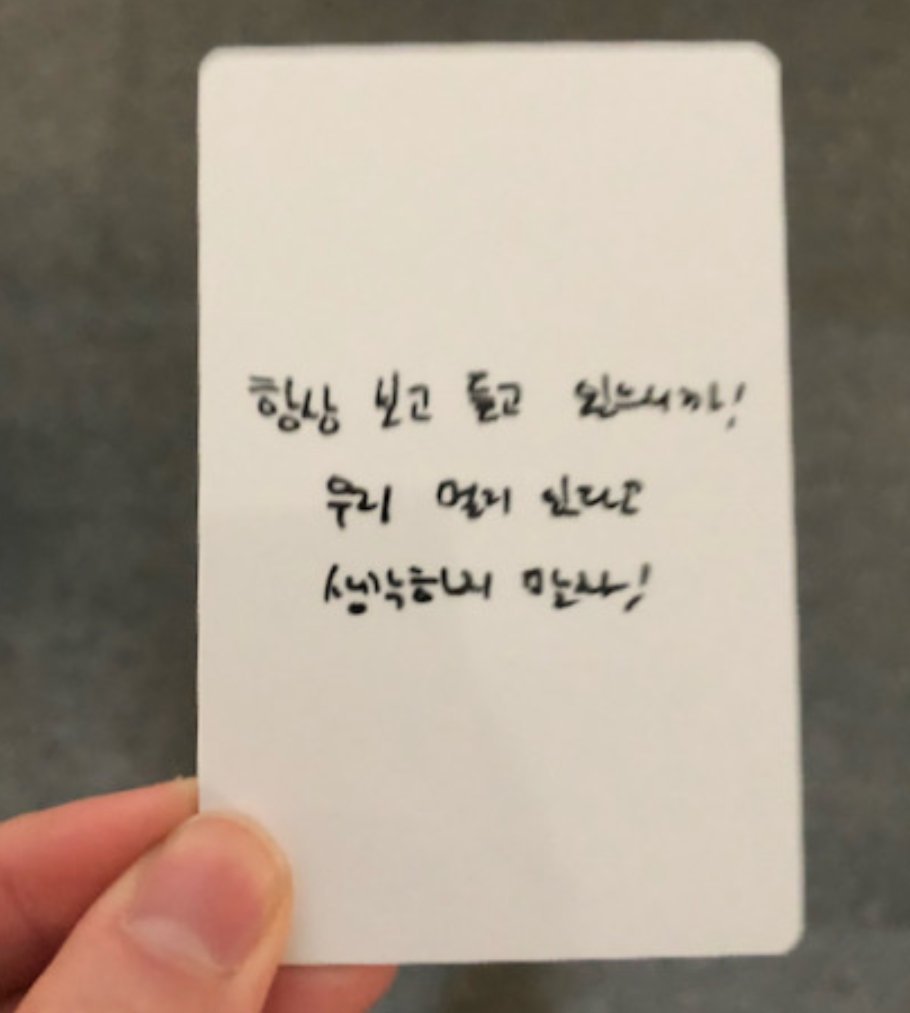 항상 보고 듣고 있으니까!
우리 멀리 있다고
생각하지 말자!